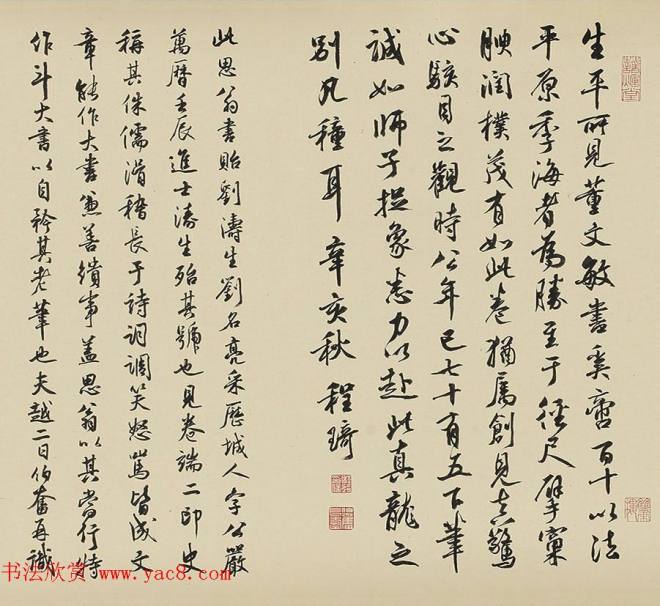 生平所見董文敏書奚啻百十以法
平原季海者為勝至于徑尺擘窠
腴潤樸茂有如此卷猶屬創見真驚
心駭目之觀時公年已七十有五下筆
誠如師子捉象悉力以赴此真龍之
別凡種耳辛亥秋程琦
此思翁書貽劉濤生劉名亮采歷城人字公嚴
萬曆壬辰進士濤生殆其號也見卷端二印史
稱其侏儒滑稽長于詩詞調笑怒罵皆成文
章能作大書兼善繢事蓋思翁以其當行特
作斗大書以自矜其老筆也夫越二日伯奮再識
书法欣赏 www.yac8.com